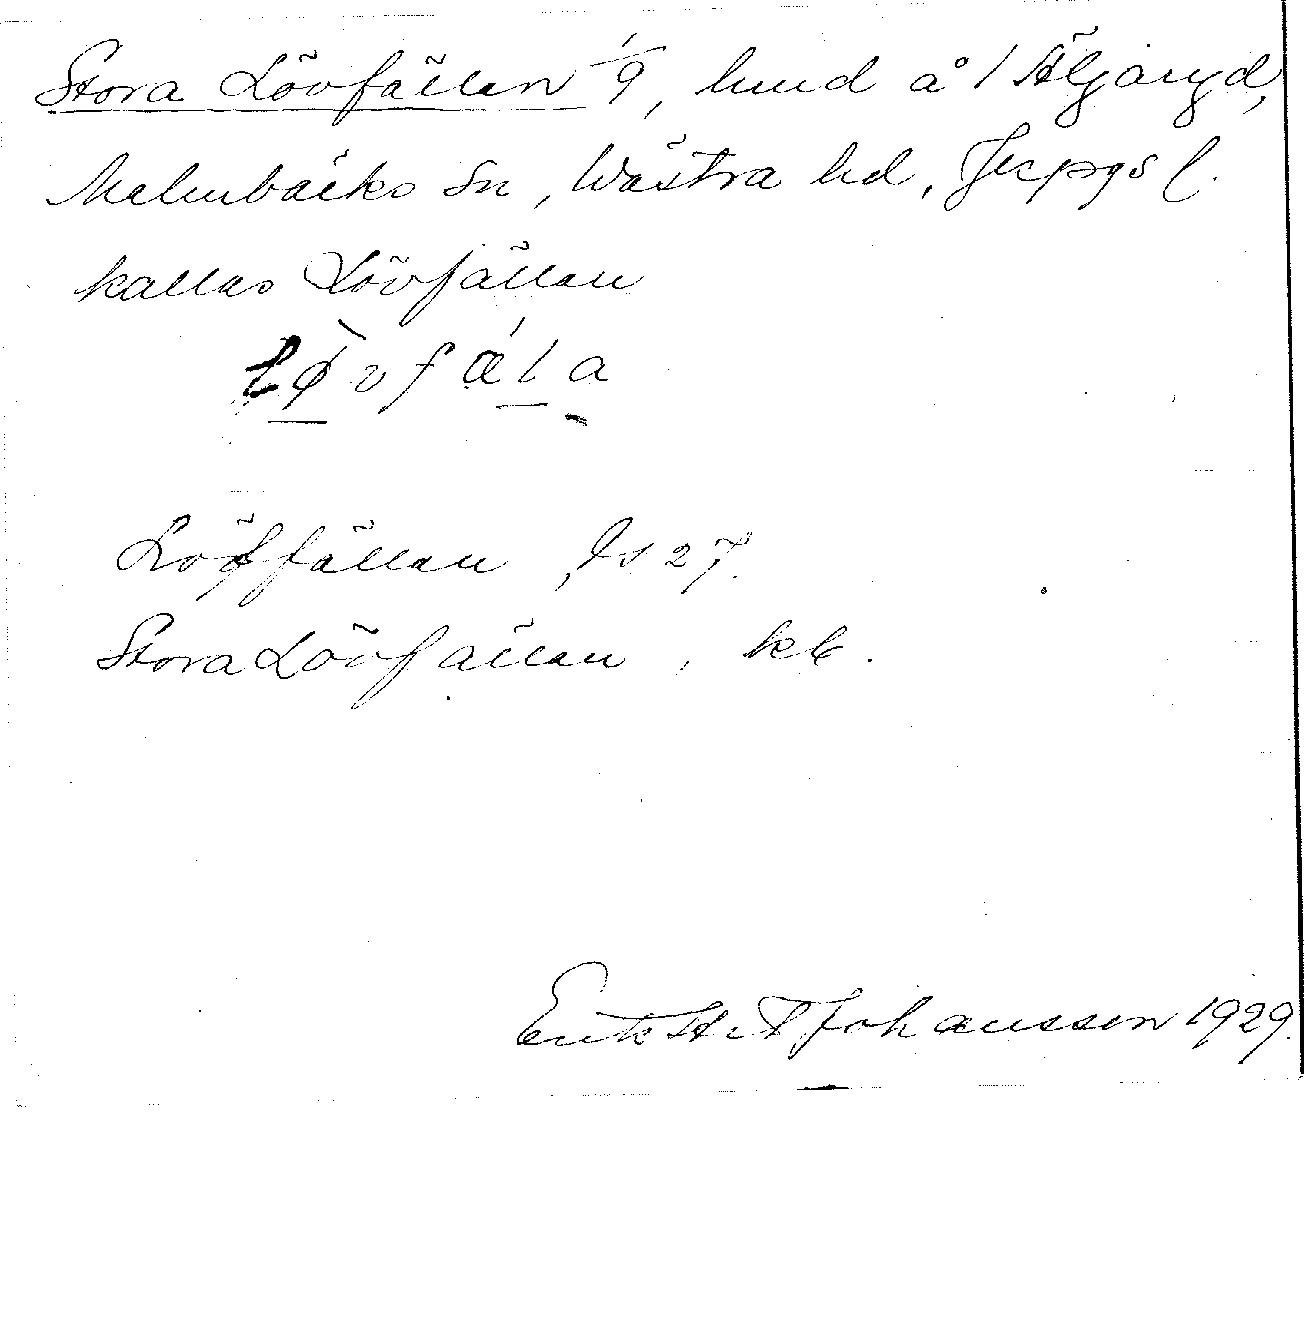 Stora Lövfällan 1/9, lund å 1 Äljaryd,
Malmbäcks sn, Västra hd, Jkpgs l.
kallas Lövfällan
lø̀vfǽla
Löffällan, Js 27.
Stora Lövfällan, kb.
Erik H:t Johansson 1929.